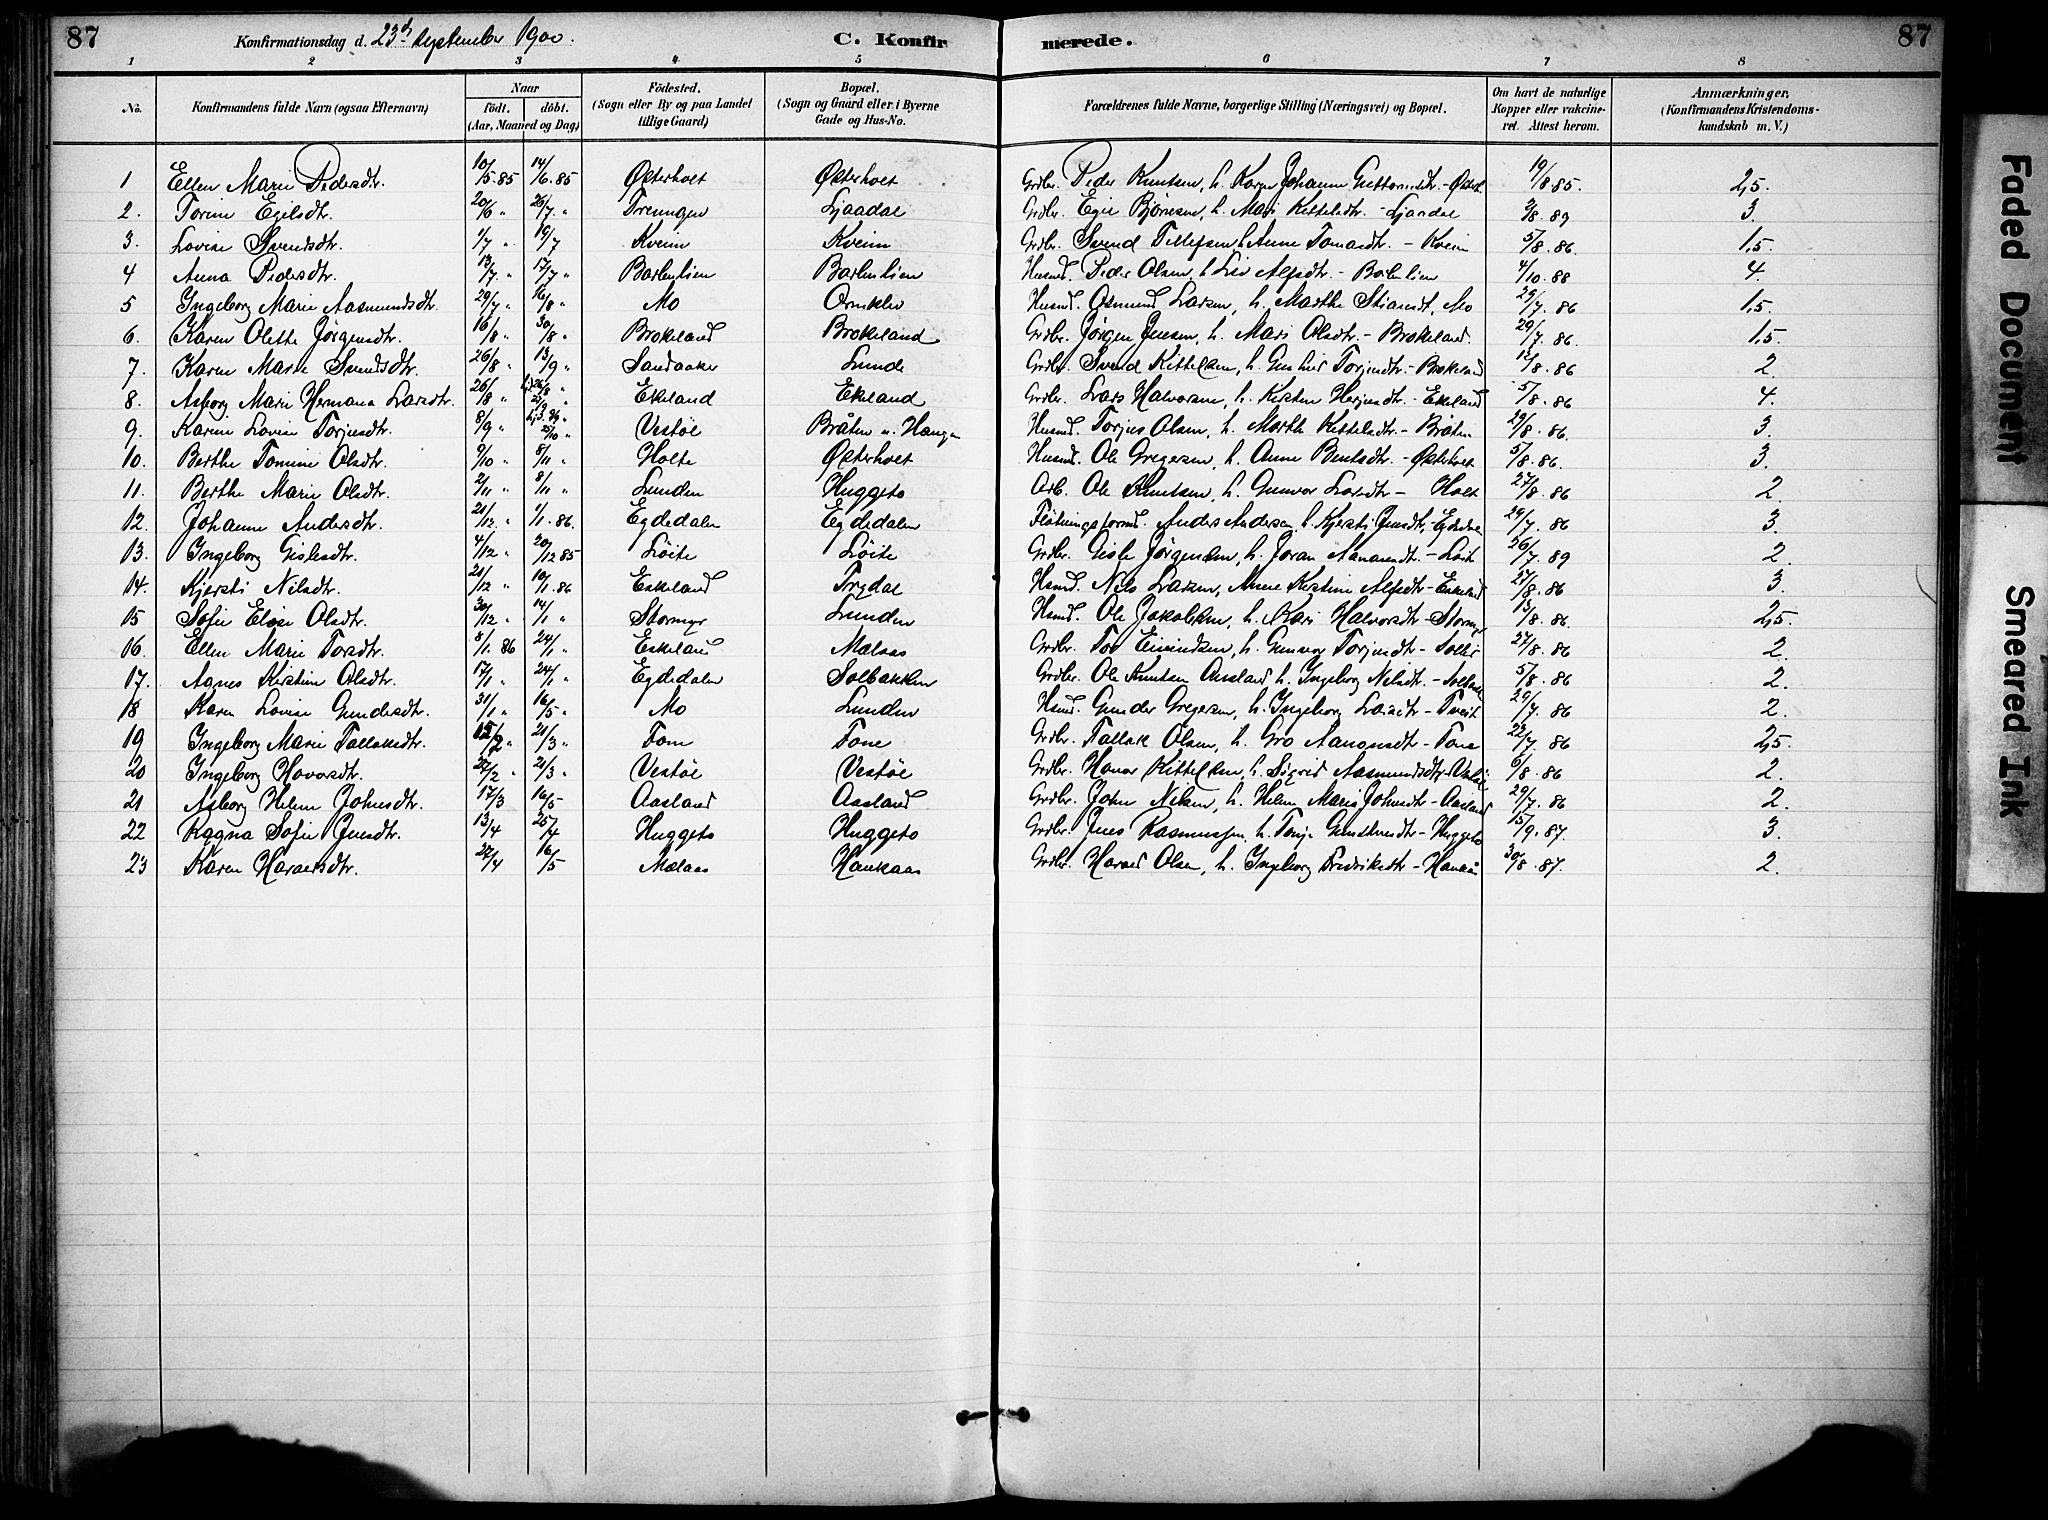 87 Konfirmationsdag d. 23d September 1900. C. Konfirmerede. 87
1 2 3 4 5 6 7 8
No. Konfirmandens fulde Navn (ogsaa Efternavn) Naar födt. döbt. (Aar, Maaned og Dag) Födested. (Sogn eller By og paa Landet tillige Gaard) Bopæl. (Sogn og Gaard eller i Byerne Gade og Hus-No. Forældrenes fulde Navne, borgerlige Stilling (Næringsvei) og Bopæl. Om havt de naturlige Kopper eller vakcineret. Attest herom. Anmærkninger. (Konfirmandens Kristendomskundskab m. V.)
1 Ellen Marie Pedersdtr. 10/5.85 14/6.85 Østerholt Østerholt Grdbr. Peder Knutsen, h. Karen Johanne Guttormsdtr. - Østerh. 19/8 85. 2,5.
2. Torine Egilsdtr. 20/6 " 26/7 " Drenngen Ljaadal Grdbr. Egil Bjørnsen, h. Mari Kittelsdtr. - Ljaadal 2/8. 89 3.
3. Lovise Svendsdtr. 1/7 " 19/7 Kveim Kveim Grdbr. Svend Tellefsen, h. Anne Tomasdtr. - Kveim 5/8. 86. 1,5.
4 Anna Pedersdtr. 13/7. " 17/7 " Barlenlien Barlenlien Husmd. Peder Olsen, h. Liv Alfsdtr. - Barlenlien 4/10. 88 4.
5 Ingeborg Marie Aasmundsdtr. 29/7 " 16/8 " Mo Ornklev Husmd. Osmund Larsen, h. Marthe Stiansdt, Mo 29/7. 86 1,5.
6. Karen Olette Jørgensdtr. 16/8 " 30/8 " Brokeland Brokeland Grdbr. Jørgen Jensen, h. Mari Olsdtr. - Brokeland. 29/7. 86. 1,5.
7. Karen Marie Svendsdtr. 26/8 " 13/9 " Sandaaker Lunde Grdbr. Svend Kittelsen, h. Gunhild Torjusdtr. - Brokeland 12/8. 86 2.
8. Asborg Marie Hermana Larsdtr. 26/8 " Ekeland Ekeland Grdbr. Lars Halvorsen, h. Kirsten Herjusdtr. - Ekeland 5/8. 86 4.
9. Karen Lovise Torjusdtr. 8/9 " 25/10 " Vestøl Bråten u. Haugen Husmd. Torjus Olsen, h. Marthe Kittelsdtr. - Bråten 29/8. 86. 3.
10. Berthe Tomine Olsdtr. 9/10 " 8/11 " Holte Østerholt Husmd. Ole Gregersen, h. Anne Bentsdtr. - Østerholt 5/8. 86. 3.
11. Berthe Marie Olsdtr. 2/11 " 8/11 " Lunden Huggeto Arb. Ole Knutsen, h. Gunvor Larsdtr - Holt 27/8. 86 2.
12. Johanne Andersdtr. 21/12. " 1/1. 86. Egdedalen Egdedalen Fløtningsformd. Anders Andersen, h. Kjersti Jensdtr, - Egdedal 29/7. 86 3.
13. Ingeborg Gislesdtr. 4/12 " 20/12 85 Löite Löite Grdbr. Gisle Jørgensen, h. Joran Aanonsdt. - Löite 26/7. 89 2.
14. Kjersti Nilsdtr. 21/12 " 10/1. 86 Eskeland Trydal Husmd. Nils Larsen, Anne Kirstine Alfsdtr - Eskeland 27/8. 86 3.
15 Sofie Elise Olsdtr. 30/12 " 14/1 " Stormyr Lunden Husmd. Ole Jakobsen, h. Kari Halvorsdtr - Stormyr 13/8. 86. 2,5.
16. Ellen Marie Torsdtr. 8/1. 86 24/1 " Eskeland Mælaas Grdbr. Tor Eivindsen, h. Gunvor Torjusdtr - 27/8. 86 2.
17. Agnes Kirstine Olsdtr. 17/1 " 24/1 " Egdedalen Solbakken Grdbr. Ole Knutsen Aasland h. Ingeborg Nilsdtr. - Solbakk 5/8. 86 2.
18 Karen Lovise Gundersdtr. 31/1 " 16/5 " Mo Lunden Husmd. Gunder Gregersen, h. Ingeborg Larsdtr - Tveit 29/7. 86 2.
19 Ingeborg Marie Tallaksdtr. 12/2 " 21/3 " Tone Tone Grdbr. Tallak Olsen, h. Gro Aanonsdtr - Tone 22/7. 86 2,5.
20 Ingeborg Havorsdtr. 22/2 " 21/3 " Vestøl Vestøl Grdbr. Havor Kittelsen, h. Sigrid Aasmundsdtr - Vestøl 6/8. 86 2.
21 Asborg Helene Johnsdtr. 17/3 16/5 Aasland Aasland Grdbr. John Nilsen, h. Helene Marie Johnsdtr - Aasland 29/7. 86 2.
22 Ragna Sofie Jensdtr. 13/4 25/4 Huggeto Huggeto Grdbr. Jens Rasmussen, h. Tonje Gundersdtr - Huggeto 15/9. 87. 3.
23 Karen Haraldsdtr. 22/4 16/5 Mælaas Haukaas Grdbr. Harald Olsen, h. Ingeborg Fredriksdtr - Haukås 30/8. 87. 2.
Faded Document
Smeared Ink